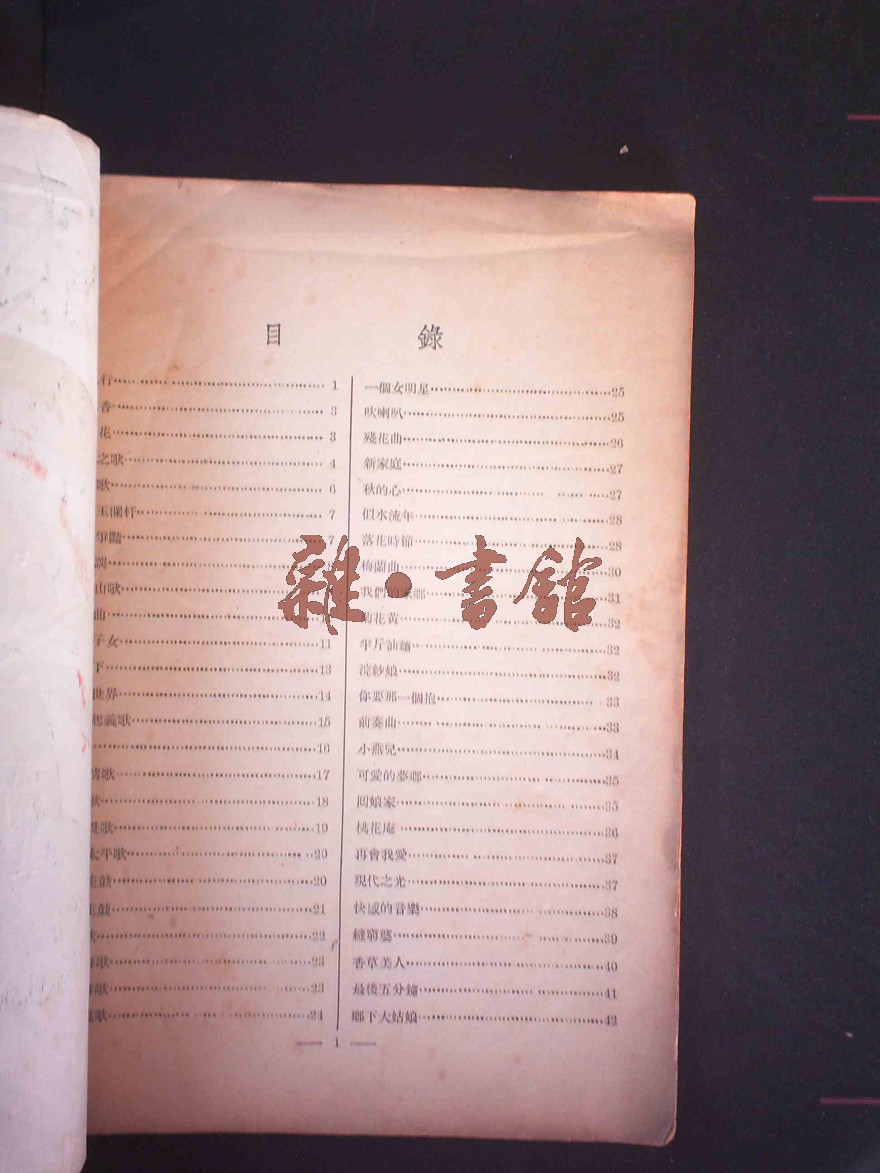 目錄
行 1
香 3
花 3
之歌 4
歌 6
玉闌杆 7
爭豔 7
誤
山歌
曲
子女 11
下 13
世界 14
起義歌 15
16
情歌 17
歌 18
歌 19
太平歌 20
花鼓 20
花鼓 21
歌 22
歌 23
歌 23
歌 24
一個女明星 25
吹喇叭 25
殘花曲 26
新家庭 27
秋的心 27
似水流年 28
落花時節 28
梅蘭曲 30
我們的家鄉 31
菊花黃 32
半斤油麵 32
浣紗娘 32
你要那一個抱 33
前奏曲 33
小燕兒 34
可愛的夢鄉 35
回娘家 35
桃花庵 36
再會我愛 37
現代之光 37
快感的音樂 38
縫窮婆 39
香草美人 40
最後五分鐘 41
鄉下大姑娘 42
— 1 —
雜·書館